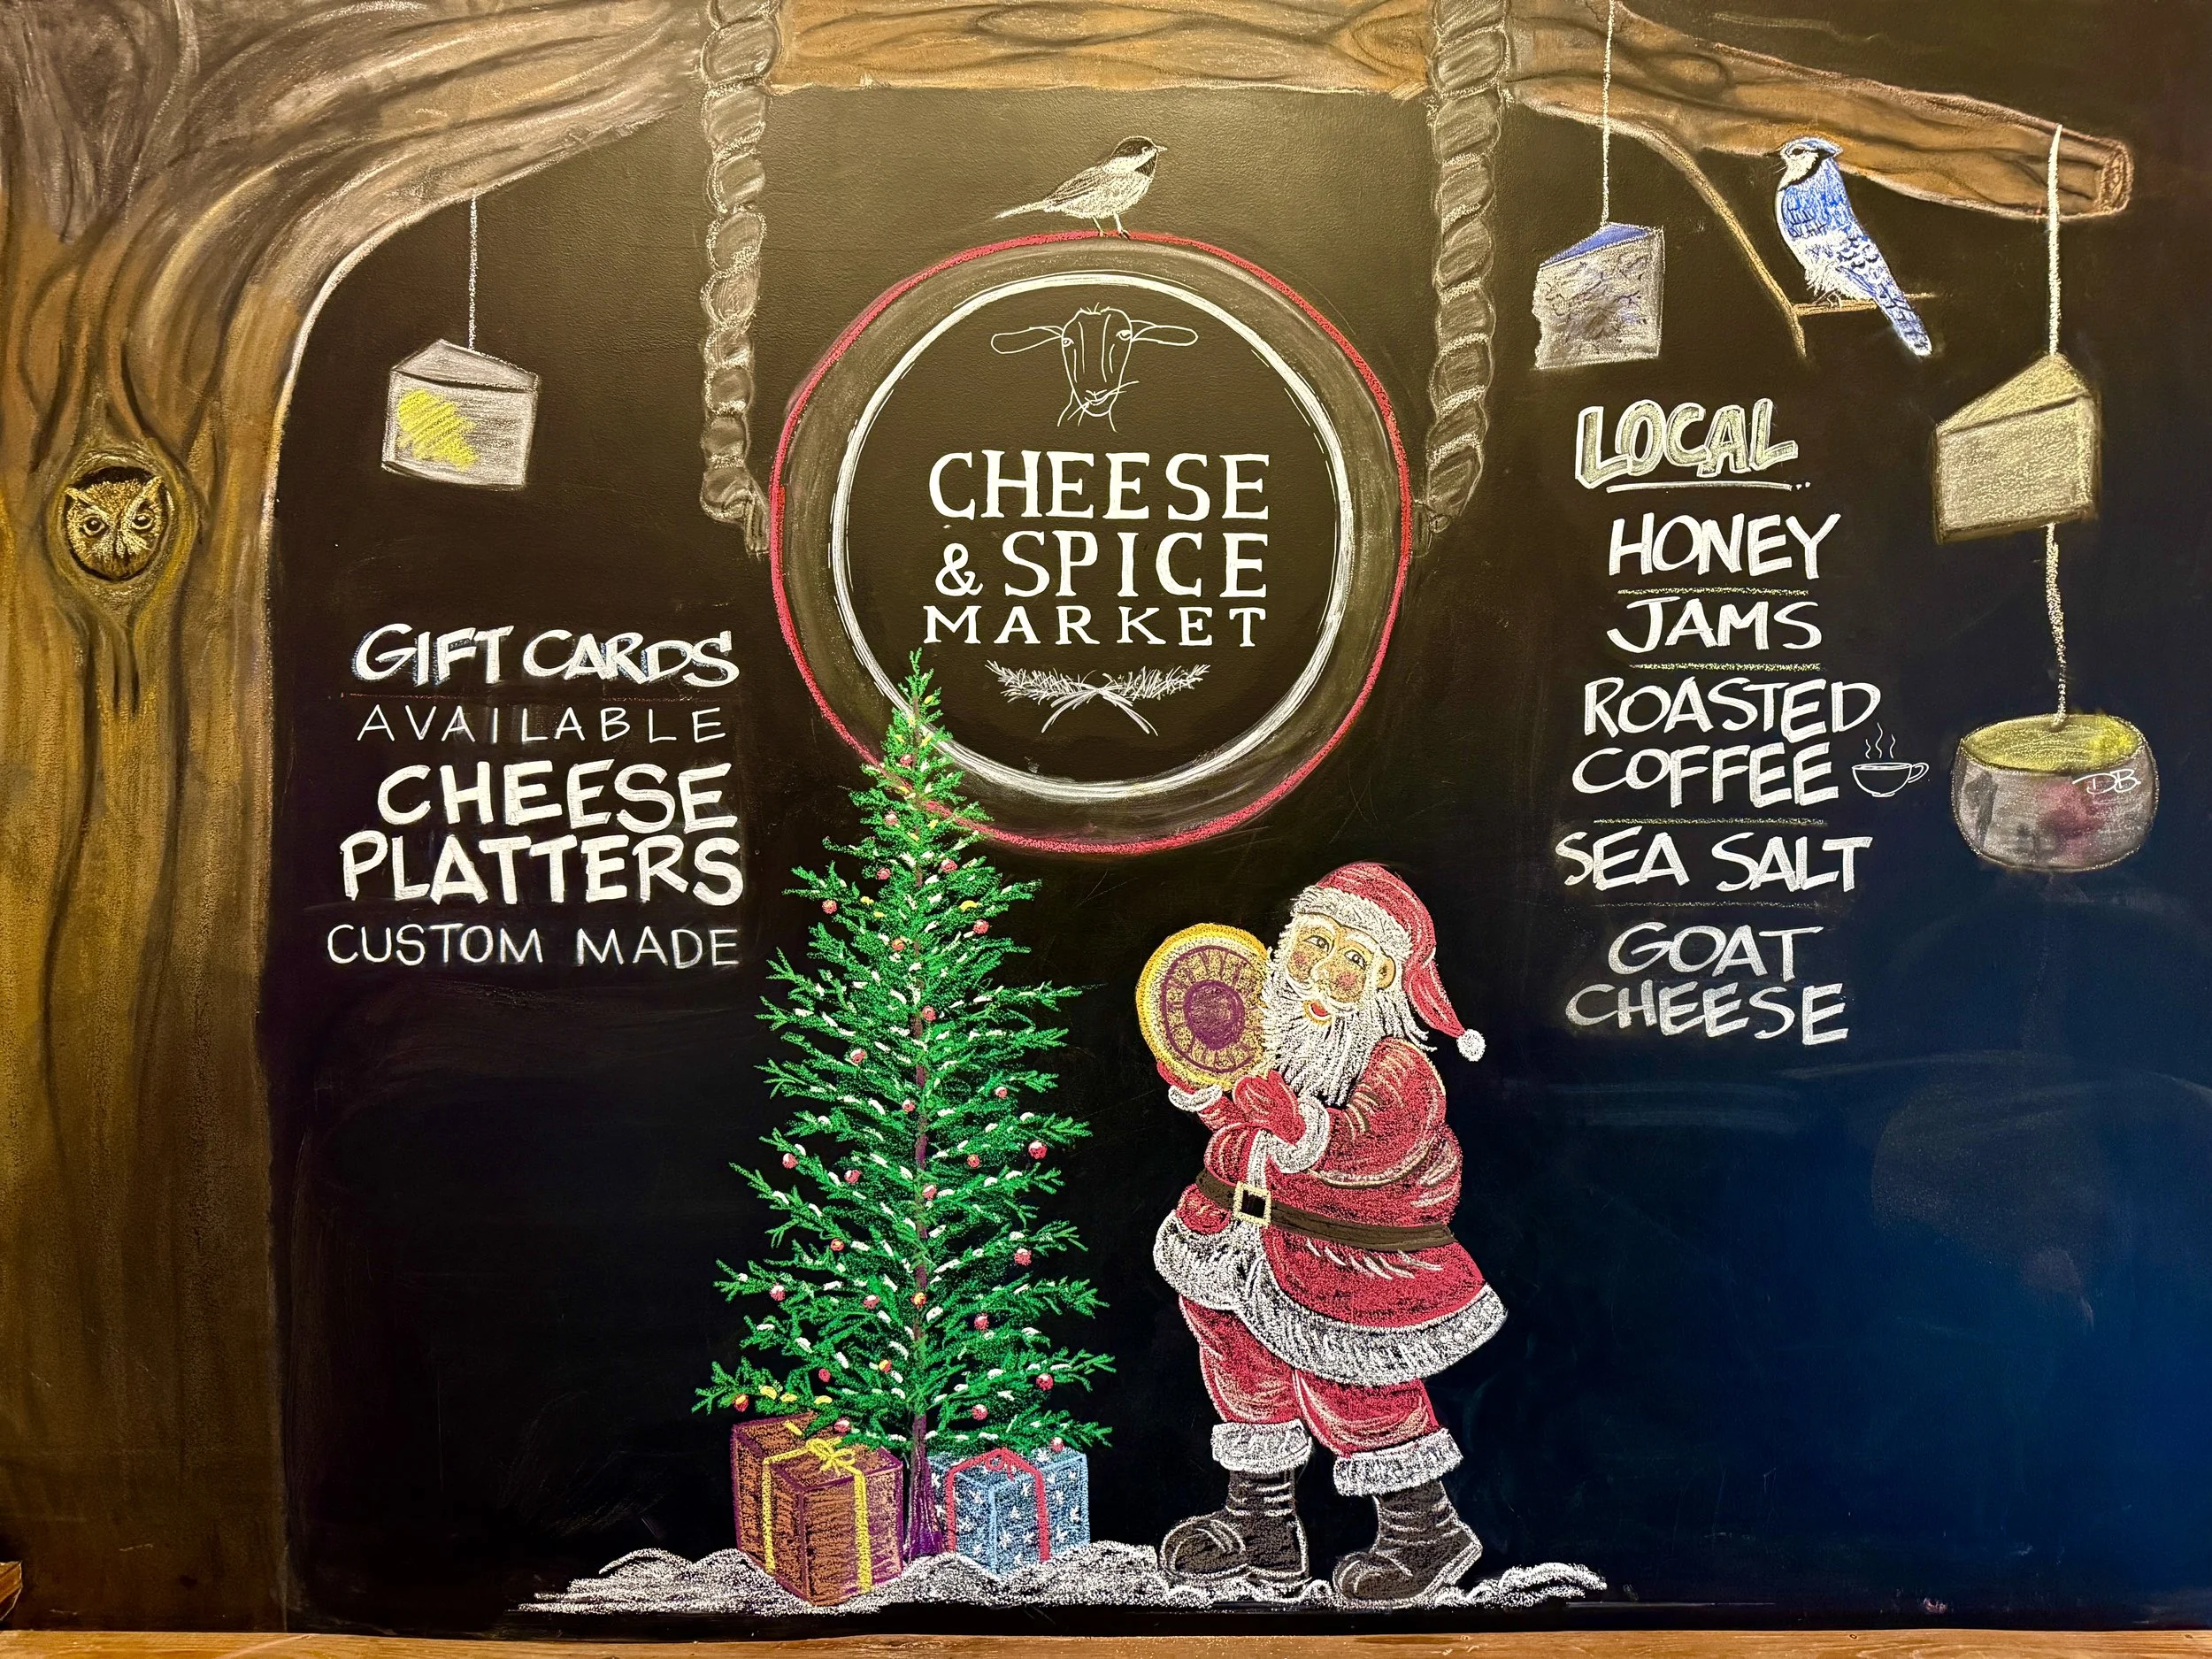 CHEESE
& SPICE
MARKET
GIFT CARDS
AVAILABLE
CHEESE
PLATTERS
CUSTOM MADE
LOCAL
HONEY
JAMS
ROASTED
COFFEE
SEA SALT
GOAT
CHEESE
DB